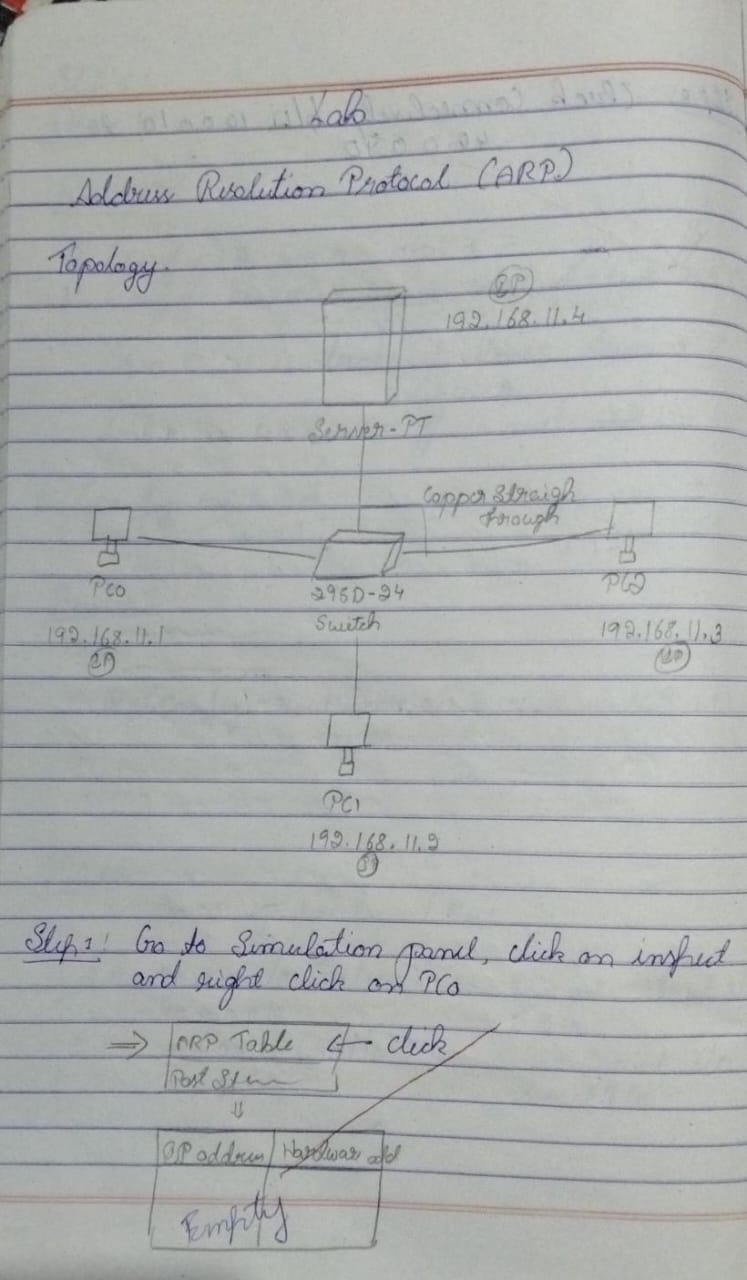 Lab
Address Resolution Protocol (ARP)
Topology.
IP
192.168.11.4
Server-PT
Copper Straigh
through
PC0
2950-24
PC2
Switch
192.168.11.1
192.168.11.3
IP
IP
PC1
192.168.11.2
IP
Step 1: Go to Simulation panel, click on inspect
and right click on PC0
⇒ ARP Table ← click
Port
⇓
IP address Hardwar add
Empty